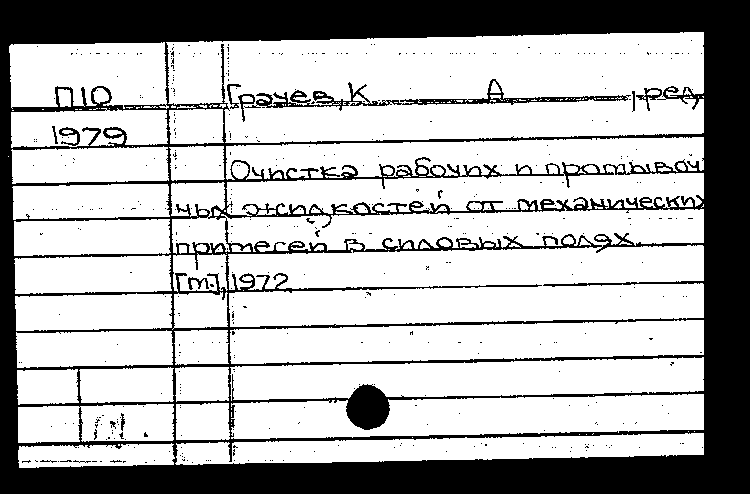 П10 Грачев, К. А., ред,
1979
Очистка рабочих и промывоч
ных жидкостей от механических
примесей в силовых полях.
[М.], 1972